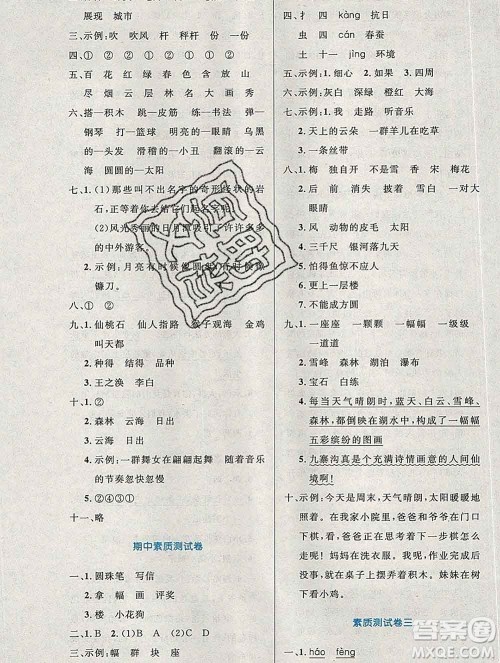 展现 城市
三、示例:吹 吹风 杆 秤杆 份 一份
四、① ② ① ② ② ①
五、百 花 红 绿 春 色 无 边
尽 烟 云 日 朝 霞 满 天
六、搭—积木 跳—皮筋 练—书法 弹—
钢琴 打—篮球 明亮的—眼睛 乌黑
的—头发 滑稽的—小丑 翻滚的—云
海 圆圆的—太阳
七、1.(1)那些叫不出名字的奇形怪状的岩
石,正等着你去给它们起名字呢!
(2)风光秀丽的黄山吸引了许许多多
的中外游客。
2.示例:月亮有时候像圆盘,有时候像
镰刀。
八、① ②
九、1.仙桃石 仙人指路 猴子观海 金鸡
叫天都
2.种得 结得 品种
3.王之涣 李白
十、1.②
2.森林 云海 日出
3.云海 日出
4.示例:一群舞女在翩翩起舞 随着音乐
的节奏忽快忽慢
5.②④③①
十一、略
期中素质测试卷
一、1.圆珠笔 写信
2.拿 幅 画 评奖
3.楼 小花狗
二、1.B 2.(1)A (2)B 3.A 4.D
三、示例:幅 群 块 座
四、扌 四 kàng 抗日
虫 四 cán 春蚕
土 十一 jìng 环境
五、示例:1.细心 2.月亮 3.四周
六、示例:灰白 深绿 橙红 碧绿
七、示例:1.我 走路 听音乐
2.天上的云朵 一群羊儿在吃草
3.一条丝带
八、1.墙 独自 不是雪 香 宋 梅花
2.前后 消失 披着 一幅 又到 睁大
眼睛
3.风 动物的皮毛 太阳
4.三千尺 银河落九天
5.怕得鱼惊不应人
6.更上一层楼
7.不能成方圆
九、1.一座座 一颗颗 一幅幅 一层层
一道道
2.雪峰 森林 湖泊 瀑布
3.宝石 白练
4.每当天气晴朗时,蓝天、白云、雪峰、
森林,都倒映在湖水中,构成了一幅幅
五彩缤纷的图画
5.九寨沟真是个充满诗情画意的人间仙
境啊!
十、示例:今天是周末,天气晴朗,太阳暖暖地
照着。在我家小院里,爸爸和爷爷在下
棋,你看,爷爷正在教爸爸下一步棋怎么
走呢!妈妈在洗衣服。我做完作业后,
坐在桌子旁看着他们,微笑着。妹妹在
喂小鸡。
素质测试卷三
一、1.háo téng